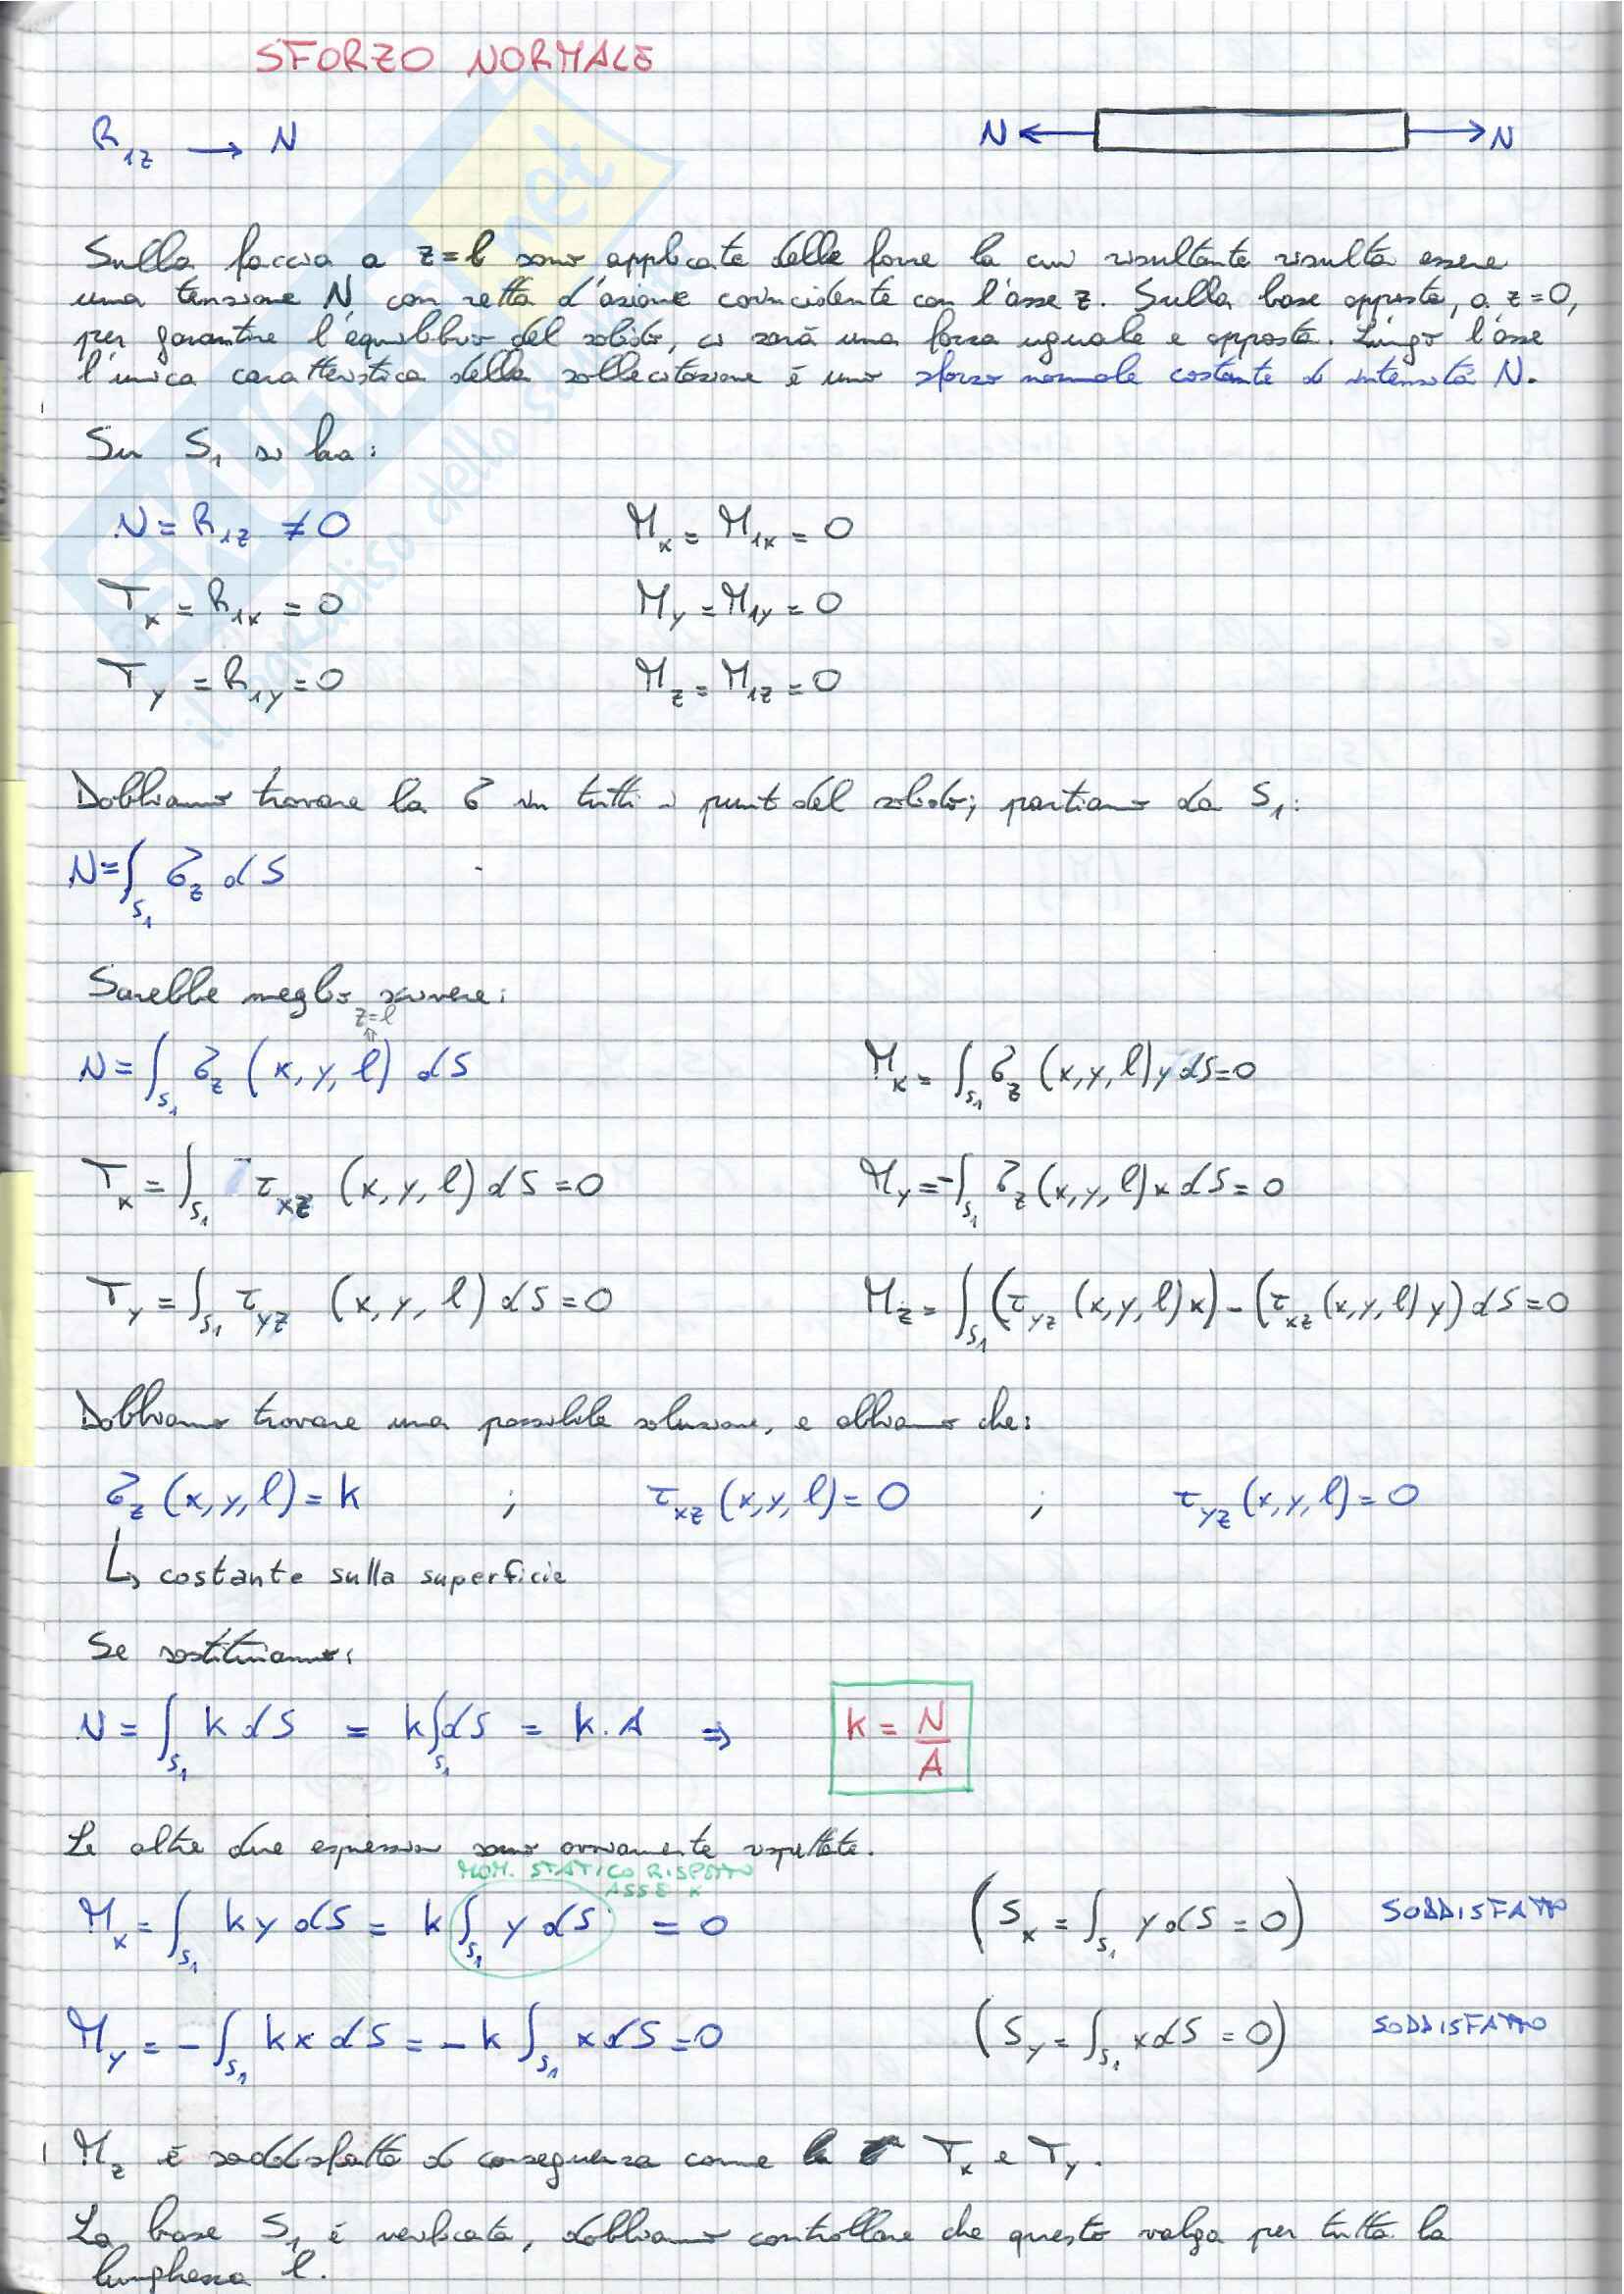 SFORZO NORMALE
R₁z → N
N ← → N
Sulla faccia a z=l sono applicate delle forze la cui risultante risulta essere
una tensione N con retta d'azione coincidente con l'asse z. Sulla base opposta, a z=0,
per garantire l'equilibrio del solido, ci sarà una forza uguale e opposta. Lungo l'asse
l'unica caratteristica della sollecitazione è uno sforzo normale costante di intensità N.
Su S₁ si ha:
N = R₁z ≠ 0 Mx = M₁x = 0
Tx = R₁x = 0 My = M₁y = 0
Ty = R₁y = 0 Mz = M₁z = 0
Dobbiamo trovare la σ in tutti i punti del solido; partiamo da S₁:
N = ∫S₁ σz dS
Sarebbe meglio scrivere:
z=l
N = ∫S₁ σz (x, y, l) dS Mx = ∫S₁ σz (x,y,l) y dS = 0
Tx = ∫S₁ τxz (x, y, l) dS = 0 My = -∫S₁ σz (x,y,l) x dS = 0
Ty = ∫S₁ τyz (x, y, l) dS = 0 Mz = ∫S₁ (τyz (x,y,l) x) - (τxz (x,y,l) y) dS = 0
Dobbiamo trovare una possibile soluzione, e abbiamo che:
σz (x,y,l) = k ; τxz (x,y,l) = 0 ; τyz (x,y,l) = 0
↳ costante sulla superficie
Se sostituiamo:
N = ∫S₁ k dS = k ∫S₁ dS = k · A ⇒ k = N/A
Le altre due espressioni sono ovviamente rispettate.
MOM. STATICO RISPETTO
ASSE X
Mx = ∫S₁ k y dS = k ∫S₁ y dS = 0 (Sx = ∫S₁ y dS = 0) SODDISFATTO
My = -∫S₁ k x dS = -k ∫S₁ x dS = 0 (Sy = ∫S₁ x dS = 0) SODDISFATTO
Mz è soddisfatto di conseguenza come Tx e Ty.
La base S₁ è verificata, dobbiamo controllare che questo valga per tutta la
lunghezza l.
SKUOLA.net
il paradiso dello studente